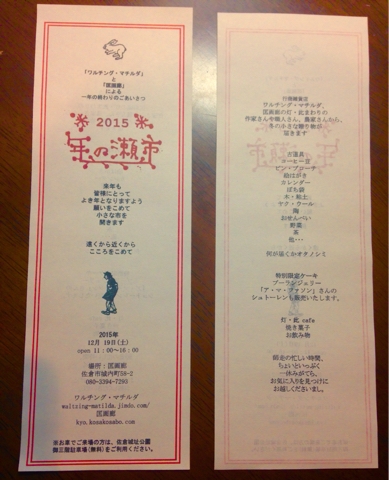 「ワルチング・マチルダ」
と
「匡画廊」
による
一年の終わりのごあいさつ
2015
年の瀬市
来年も
皆様にとって
よき年となりますよう
願いをこめて
小さな市を
開きます
遠くから近くから
こころをこめて
2015年
12月 19日(土)
open 11:00〜16:00
場所:匡画廊
佐倉市城内町58-2
080-3394-7293
ワルチング・マチルダ
waltzing-matilda.jimdo.com/
匡画廊
kyo.kosakosabo.com
※お車でご来場の方は、佐倉城址公園
御三階駐車場(無料)をご利用ください。
行商雑貨店
ワルチング・マチルダ、
匡画廊の灯・此まわりの
作家さんや職人さん、農家さんから、
冬の小さな贈り物が
届きます
古道具
コーヒー豆
ピン・ブローチ
絵はがき
カレンダー
ぽち袋
木・粘土
ヤク・ウール
陶
おせんべい
野菜
茶
他・・・
何が届くかオタノシミ
特別限定ケーキ
ブーランジェリー
「ア・マ・ファソン」さんの
シュトーレンも販売いたします。
灯・此 cafe
焼き菓子
お飲み物
師走の忙しい時間、
ちょいといっぷく
一休みがてら、
お気に入りを見つけに
お越しくださいまし。